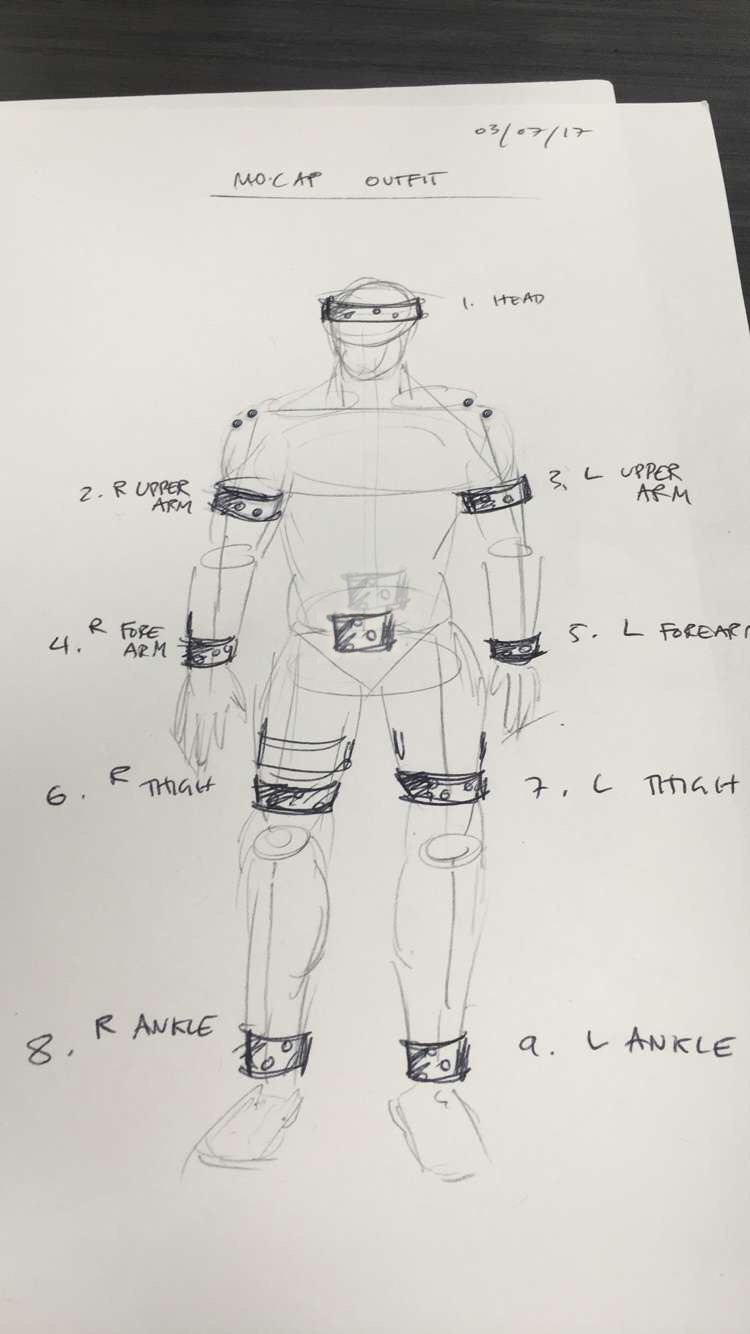 03/07/17
MO.CAP OUTFIT
1. HEAD
2. R UPPER
ARM
3. L UPPER
ARM
4. R FORE
ARM
5. L FOREARM
6. R THIGH
7. L THIGH
8. R ANKLE
9. L ANKLE